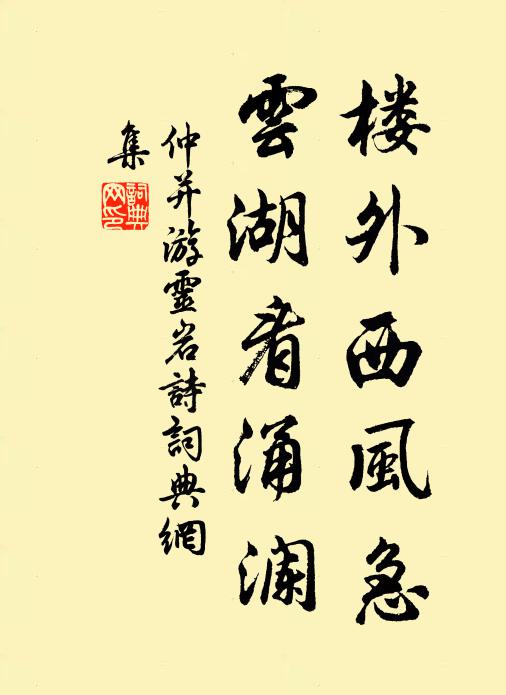 楼外西風急
雲湖看涌瀾
仲并游靈岩詩詞典網
集
詞典網印